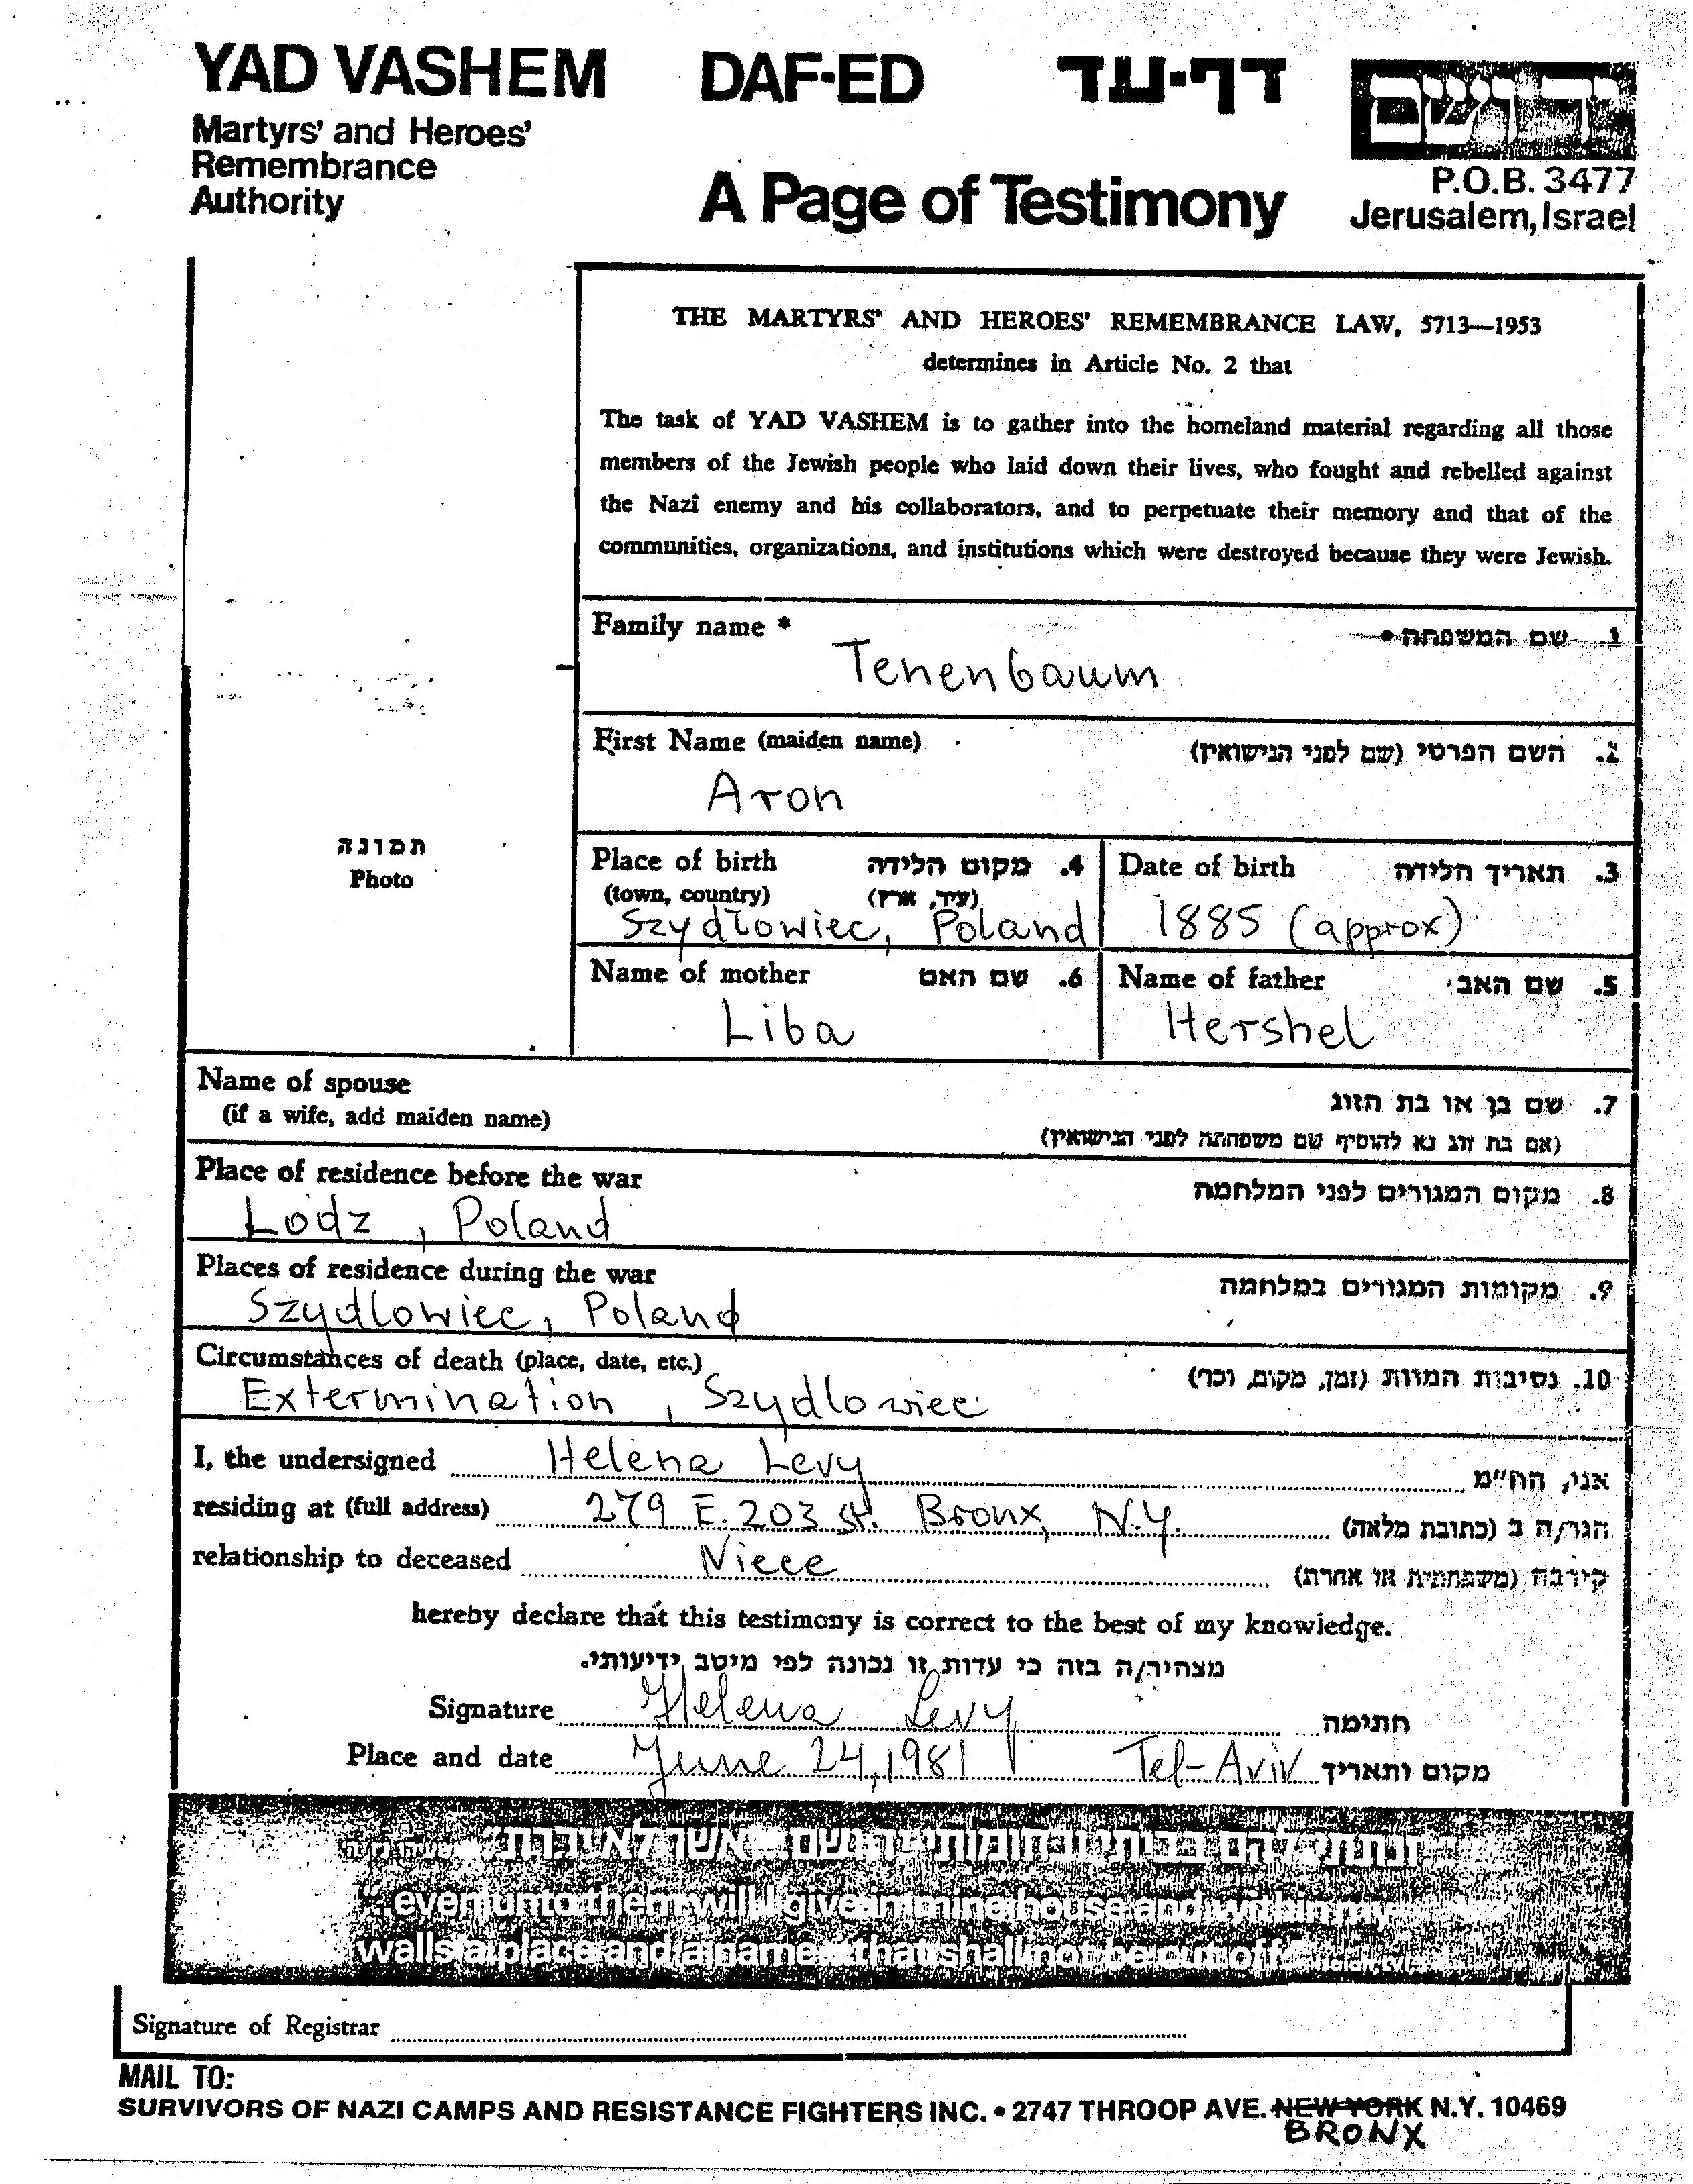 YAD VASHEM DAF-ED דף-עד
Martyrs' and Heroes'
Remembrance
Authority
A Page of Testimony
יד ושם
P.O.B. 3477
Jerusalem, Israel
THE MARTYRS' AND HEROES' REMEMBRANCE LAW, 5713—1953
determines in Article No. 2 that
The task of YAD VASHEM is to gather into the homeland material regarding all those
members of the Jewish people who laid down their lives, who fought and rebelled against
the Nazi enemy and his collaborators, and to perpetuate their memory and that of the
communities, organizations, and institutions which were destroyed because they were Jewish.
Family name * 1. שם המשפחה *
Tenenbaum
First Name (maiden name) 2. השם הפרטי (שם לפני הנישואין)
Aron
תמונה
Photo
Place of birth 4. מקום הלידה
(town, country) (עיר, ארץ)
Szydłowiec, Poland
Date of birth 3. תאריך הלידה
1885 (approx)
Name of mother 6. שם האם
Liba
Name of father 5. שם האב
Hershel
Name of spouse 7. שם בן או בת הזוג
(if a wife, add maiden name) (אם בת זוג נא להוסיף שם משפחתה לפני הנישואין)
Place of residence before the war 8. מקום המגורים לפני המלחמה
Lodz, Poland
Places of residence during the war 9. מקומות המגורים במלחמה
Szydlowiec, Poland
Circumstances of death (place, date, etc.) 10. נסיבות המוות (זמן, מקום, וכו')
Extermination, Szydlowiec
I, the undersigned Helena Levy אני, הח"מ
residing at (full address) 279 E. 203 St. Bronx, N.Y. הגר/ה ב (כתובת מלאה)
relationship to deceased Niece קירבה (משפחתית או אחרת)
hereby declare that this testimony is correct to the best of my knowledge.
מצהיר/ה בזה כי עדות זו נכונה לפי מיטב ידיעותי.
Signature Helena Levy חתימה
Place and date June 24, 1981 Tel-Aviv מקום ותאריך
"...even unto them will I give in mine house and within my
walls a place and a name... that shall not be cut off"
Signature of Registrar
MAIL TO:
SURVIVORS OF NAZI CAMPS AND RESISTANCE FIGHTERS INC. • 2747 THROOP AVE. NEW YORK N.Y. 10469
BRONX